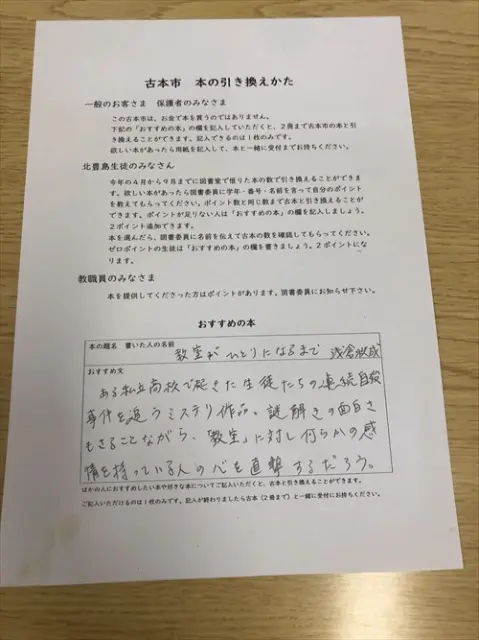 古本市　本の引き換えかた
一般のお客さま　保護者のみなさま
この古本市は、お金で本を買うのではありません。
下記の「おすすめの本」の欄を記入していただくと、2冊まで古本市の本と引
き換えることができます。記入できるのは1枚のみです。
欲しい本があったら用紙を記入して、本と一緒に受付までお持ちください。
北豊島生徒のみなさん
今年の4月から9月までに図書室で借りた本の数で引き換えることができま
す。欲しい本があったら図書委員に学年・番号・名前を言って自分のポイント
を教えてもらってください。ポイント数と同じ数まで古本と引き換えることが
できます。ポイントが足りない人は「おすすめの本」の欄を記入しましょう。
2ポイント追加できます。
本を選んだら、図書委員に名前を伝えて古本の数を確認してもらってください。
ゼロポイントの生徒は「おすすめの本」の欄を書きましょう。2ポイントにな
ります。
教職員のみなさま
本を提供してくださった方はポイントがあります。図書委員にお知らせ下さい。
おすすめの本
本の題名　書いた人の名前
教室が ひとりになるまで　浅倉秋成
おすすめ文
ある私立高校で起きた生徒たちの連続自殺
事件を追うミステリ作品。謎解きの面白さ
もさることながら、「教室」に対し何らかの感
情を持っている人の心を直撃するだろう。
ほかの人におすすめしたい本や好きな本についてご記入いただくと、古本と引き換えることができます。
ご記入いただけるのは1枚のみです。記入が終わりましたら古本（2冊まで）と一緒に受付にお持ちください。